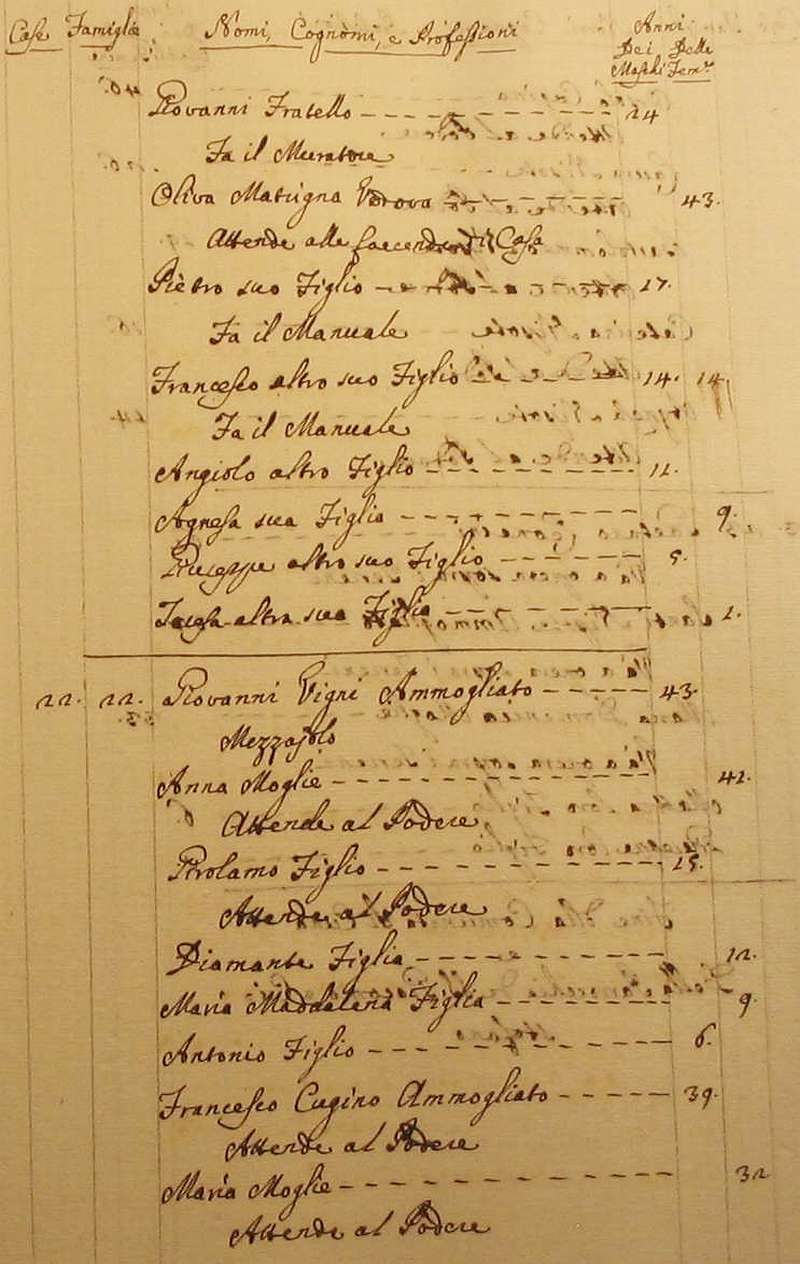 Case Famiglie Nomi, Cognomi, e Professioni Anni
Dei Delle
Maschi Fem.e
Giovanni Fratello 24
Fa il Muratore
Oliva Matrigna Vedova 43.
Attende alle faccende di Casa
Pietro suo Figlio 17.
Fa il Manuale
Francesco altro suo Figlio 14. 14
Fa il Manuale
Angiolo altro Figlio 12.
Agnesa sua Figlia 9.
Giuseppe altro suo Figlio 5.
altra sua Figlia 2.
22. 22. Giovanni Vigni Ammogliato 43.
Mezzajolo
Anna Moglie 42.
Attende al Podere
Girolamo Figlio 15.
Attende al Podere
Diamante Figlia 12.
Maria Maddalena Figlia 9.
Antonio Figlio 6.
Francesco Cugino Ammogliato 39.
Attende al Podere
Maria Moglie 32
Attende al Podere